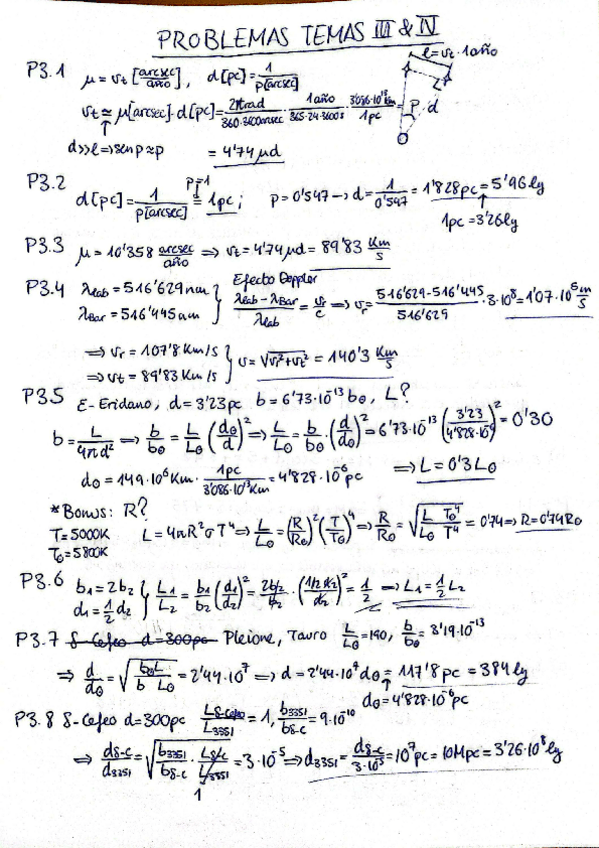 PROBLEMAS TEMAS III & IV
P3.1 μ = v_t [arcsec/año], d[pc] = 1/p[arcsec]
l = v_t · 1 año
v_t ≃ μ[arcsec] · d[pc] = 2π rad/360·3600arcsec · 1 año/365·24·3600s · 3'086·10^13 km/1pc =
p d
d>>l ⇒ sen p ≈ p = 4'74 μd
P3.2 d[pc] = 1/p[arcsec] = 1pc; p = 0'547 → d = 1/0'547 = 1'828pc = 5'96 ly
p=1
1pc = 3'26ly
P3.3 μ = 10'358 arcsec/año ⇒ v_t = 4'74 μd = 89'83 Km/s
P3.4 λlab = 516'629nm λBar = 516'445nm } Efecto Doppler λlab - λBar/λlab = v_r/c ⇒ v_r = 516'629-516'445/516'629 · 3·10^8 = 1'07·10^5 m/s
⇒ v_r = 107'8 Km/s ⇒ v_t = 89'83 Km/s } v = √(v_r² + v_t²) = 140'3 Km/s
P3.5 ε-Eridano, d = 3'23pc b = 6'73·10^-13 b⊙, L?
b = L/4πd² ⇒ b/b⊙ = L/L⊙ (d⊙/d)² ⇒ L/L⊙ = b/b⊙ · (d/d⊙)² = 6'73·10^-13 (3'23/4'828·10^-6)² = 0'30
d⊙ = 149·10^6 Km · 1pc/3'086·10^13 Km = 4'828·10^-6 pc ⇒ L = 0'3L⊙
*Bonus: R?
T = 5000K T⊙ = 5800K L = 4πR²σT⁴ ⇒ L/L⊙ = (R/R⊙)² (T/T⊙)⁴ ⇒ R/R⊙ = √(L/L⊙ T⊙⁴/T⁴) = 0'74 ⇒ R = 0'74R⊙
P3.6 b1 = 2b2 d1 = 1/2 d2 } L1/L2 = b1/b2 (d1/d2)² = 2b2/b2 · (1/2 d2/d2)² = 1/2 ⇒ L1 = 1/2 L2
P3.7 δ-Cefeo d=300pc Pleione, Tauro L/L⊙ = 190, b/b⊙ = 3'19·10^-13
⇒ d/d⊙ = √(b⊙/b L/L⊙) = 2'44·10^7 ⇒ d = 2'44·10^7 d⊙ = 117'8 pc = 384 ly
d⊙ = 4'828·10^-6 pc
P3.8 δ-Cefeo d=300pc Lδ-Cefeo/L3351 = 1, b3351/bδ-c = 9·10^-10
⇒ dδ-c/d3351 = √(b3351/bδ-c · Lδ-c/L3351) = 3·10^-5 ⇒ d3351 = dδ-c/3·10^-5 = 10^7 pc = 10Mpc = 3'26·10^8 ly
1